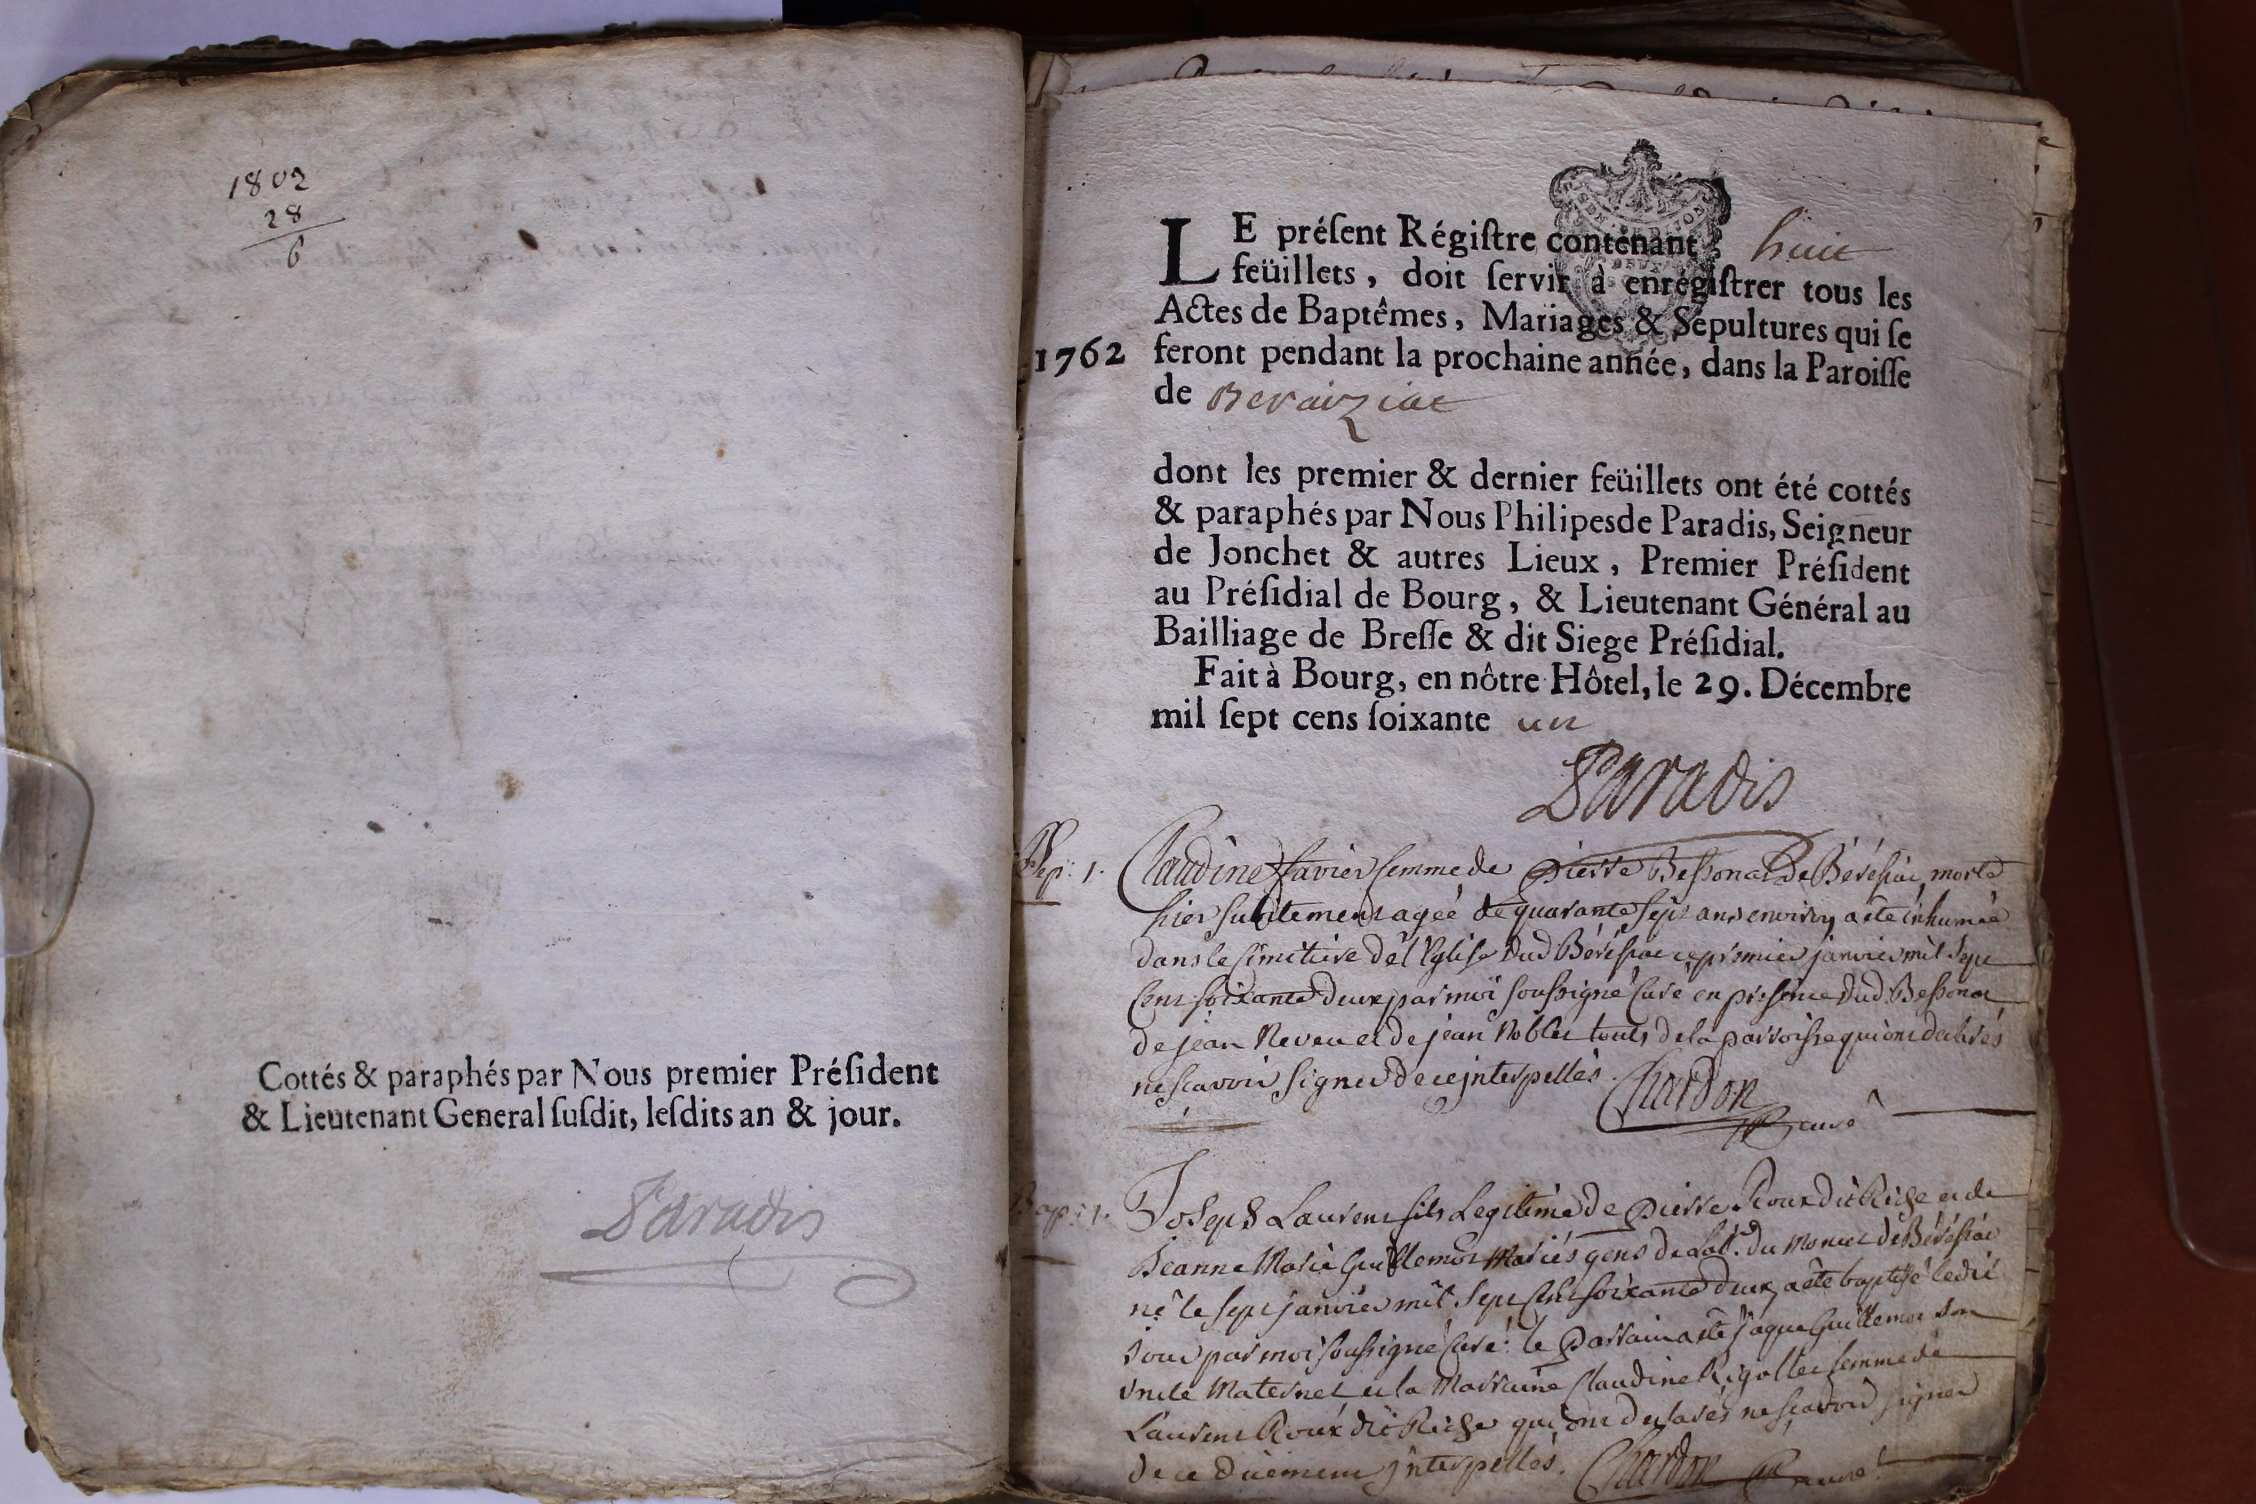 1802
28
6
Cottés & paraphés par Nous premier Préſident
& Lieutenant General ſuſdit, leſdits an & jour.
Paradis
LE préſent Régiſtre contenant huit
feüillets, doit ſervir à enrégiſtrer tous les
Actes de Baptêmes, Mariages & Sépultures qui ſe
1762 feront pendant la prochaine année, dans la Paroiſſe
de Beraiziat
dont les premier & dernier feüillets ont été cottés
& paraphés par Nous Philipes de Paradis, Seigneur
de Jonchet & autres Lieux, Premier Préſident
au Préſidial de Bourg, & Lieutenant Général au
Bailliage de Breſſe & dit Siege Préſidial.
Fait à Bourg, en nôtre Hôtel, le 29. Décembre
mil ſept cens ſoixante un
Paradis
Sep: 1. Claudine femme de Pierre Bessonat De Béréssiac morte
hier subitement ageé de quarante sept ans environ a été inhumée
dans le Cimetiere de l'Eglise dud Béréssiac ce premier janvier mil sept
Cent soixante deux par moi soussigné Curé en présence dud Bessonat
de jean Neveu et de jean Noblet touts de la parroisse qui ont declarés
ne scavoir signer de ce jnterpellés. Chardon
curé
Bap: 1. Joseph Laurent fils Legitime de Pierre Roux dit Riche et de
Jeanne Marie Guillemot Mariés gens de Lab.r du Moncet de Béréssiac
né le sept janvier mil sept Cent soixante deux a été baptisé le dit
jour par moi soussigné Curé: le Parrain a été jaque Guillemot son
oncle Maternel et la Marraine Claudine Rigollet femme de
Laurent Roux dit Riche qui ont declarés ne scavoir signer
de ce duement jnterpellés. Chardon curé